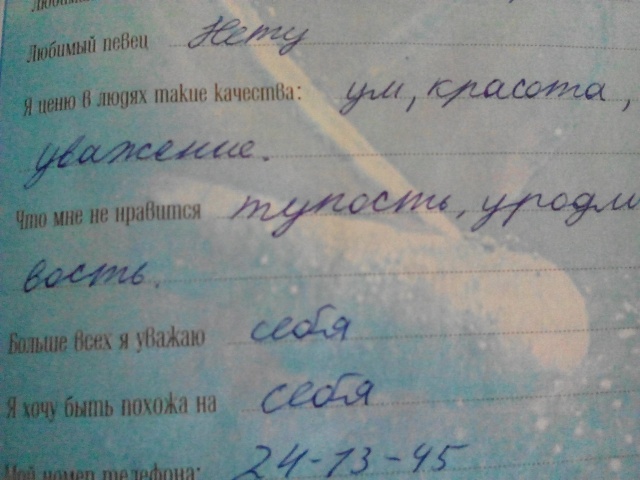 Любимый певец Нету
Я ценю в людях такие качества: ум, красота,
уважение.
Что мне не нравится тупость, уродли
вость.
Больше всех я уважаю себя
Я хочу быть похожа на себя
Мой номер телефона: 24-13-45